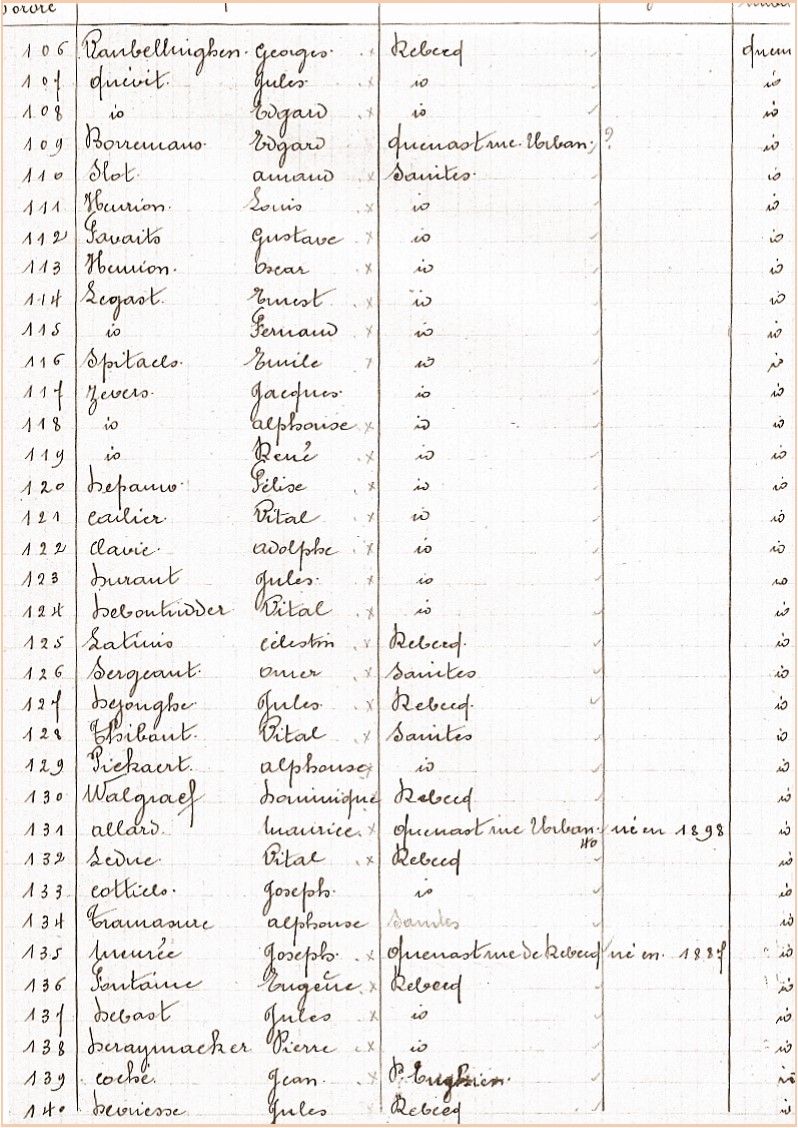 d'ordre
106 Vanbellinghen. Georges. x Rebecq quen
107 Quévit. Jules. x io io
108 io Edgard x io io
109 Borremans. Edgard Quenast rue Urban; ? io
110 Slot. amand x Saintes. io
111 Henrion. Louis x io io
112 Gustave x io io
113 Henrion. oscar x io io
114 Legast. Ernest x io io
115 io Fernand x io io
116 Spitaels. Emile x io io
117 Zevers. Jacques. io io
118 io alphonse x io io
119 io René x io io
120 Félise x io io
121 carlier. Vital x io io
122 clavie. adolphe x io io
123 Durant Jules. x io io
124 Deboutridder Vital x io io
125 Latinis célestin x Rebecq. io
126 Sergeant. omer x Saintes io
127 Dejonghe Jules. x Rebecq. io
128 Thibaut. Vital x Saintes io
129 Piekaert. alphonse x io io
130 Walgraef Dominique Rebecq io
131 allard. Maurice. x Quenast rue Urban. 40 né en 1898 io
132 Leduc. Vital x Rebecq io
133 cottiels. Joseph. io io
134 Tramasure alphonse Saintes io
135 Meurée Joseph. x Quenast rue de Rebecq né en 1887 io
136 Fontaine Eugène x Rebecq io
137 Debast Jules x io io
138 Deraymaeker Pierre x io io
139 coché. Jean. x P. Enghien. io
140 Devriesse Jules x Rebecq io